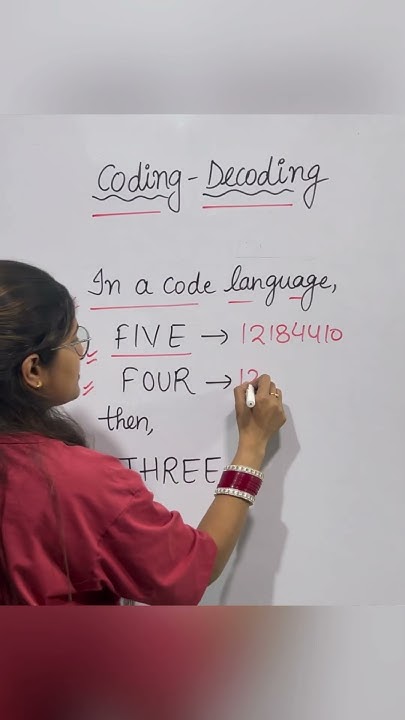 Coding - Decoding
In a code language,
FIVE → 12184410
FOUR → 12
then,
THREE